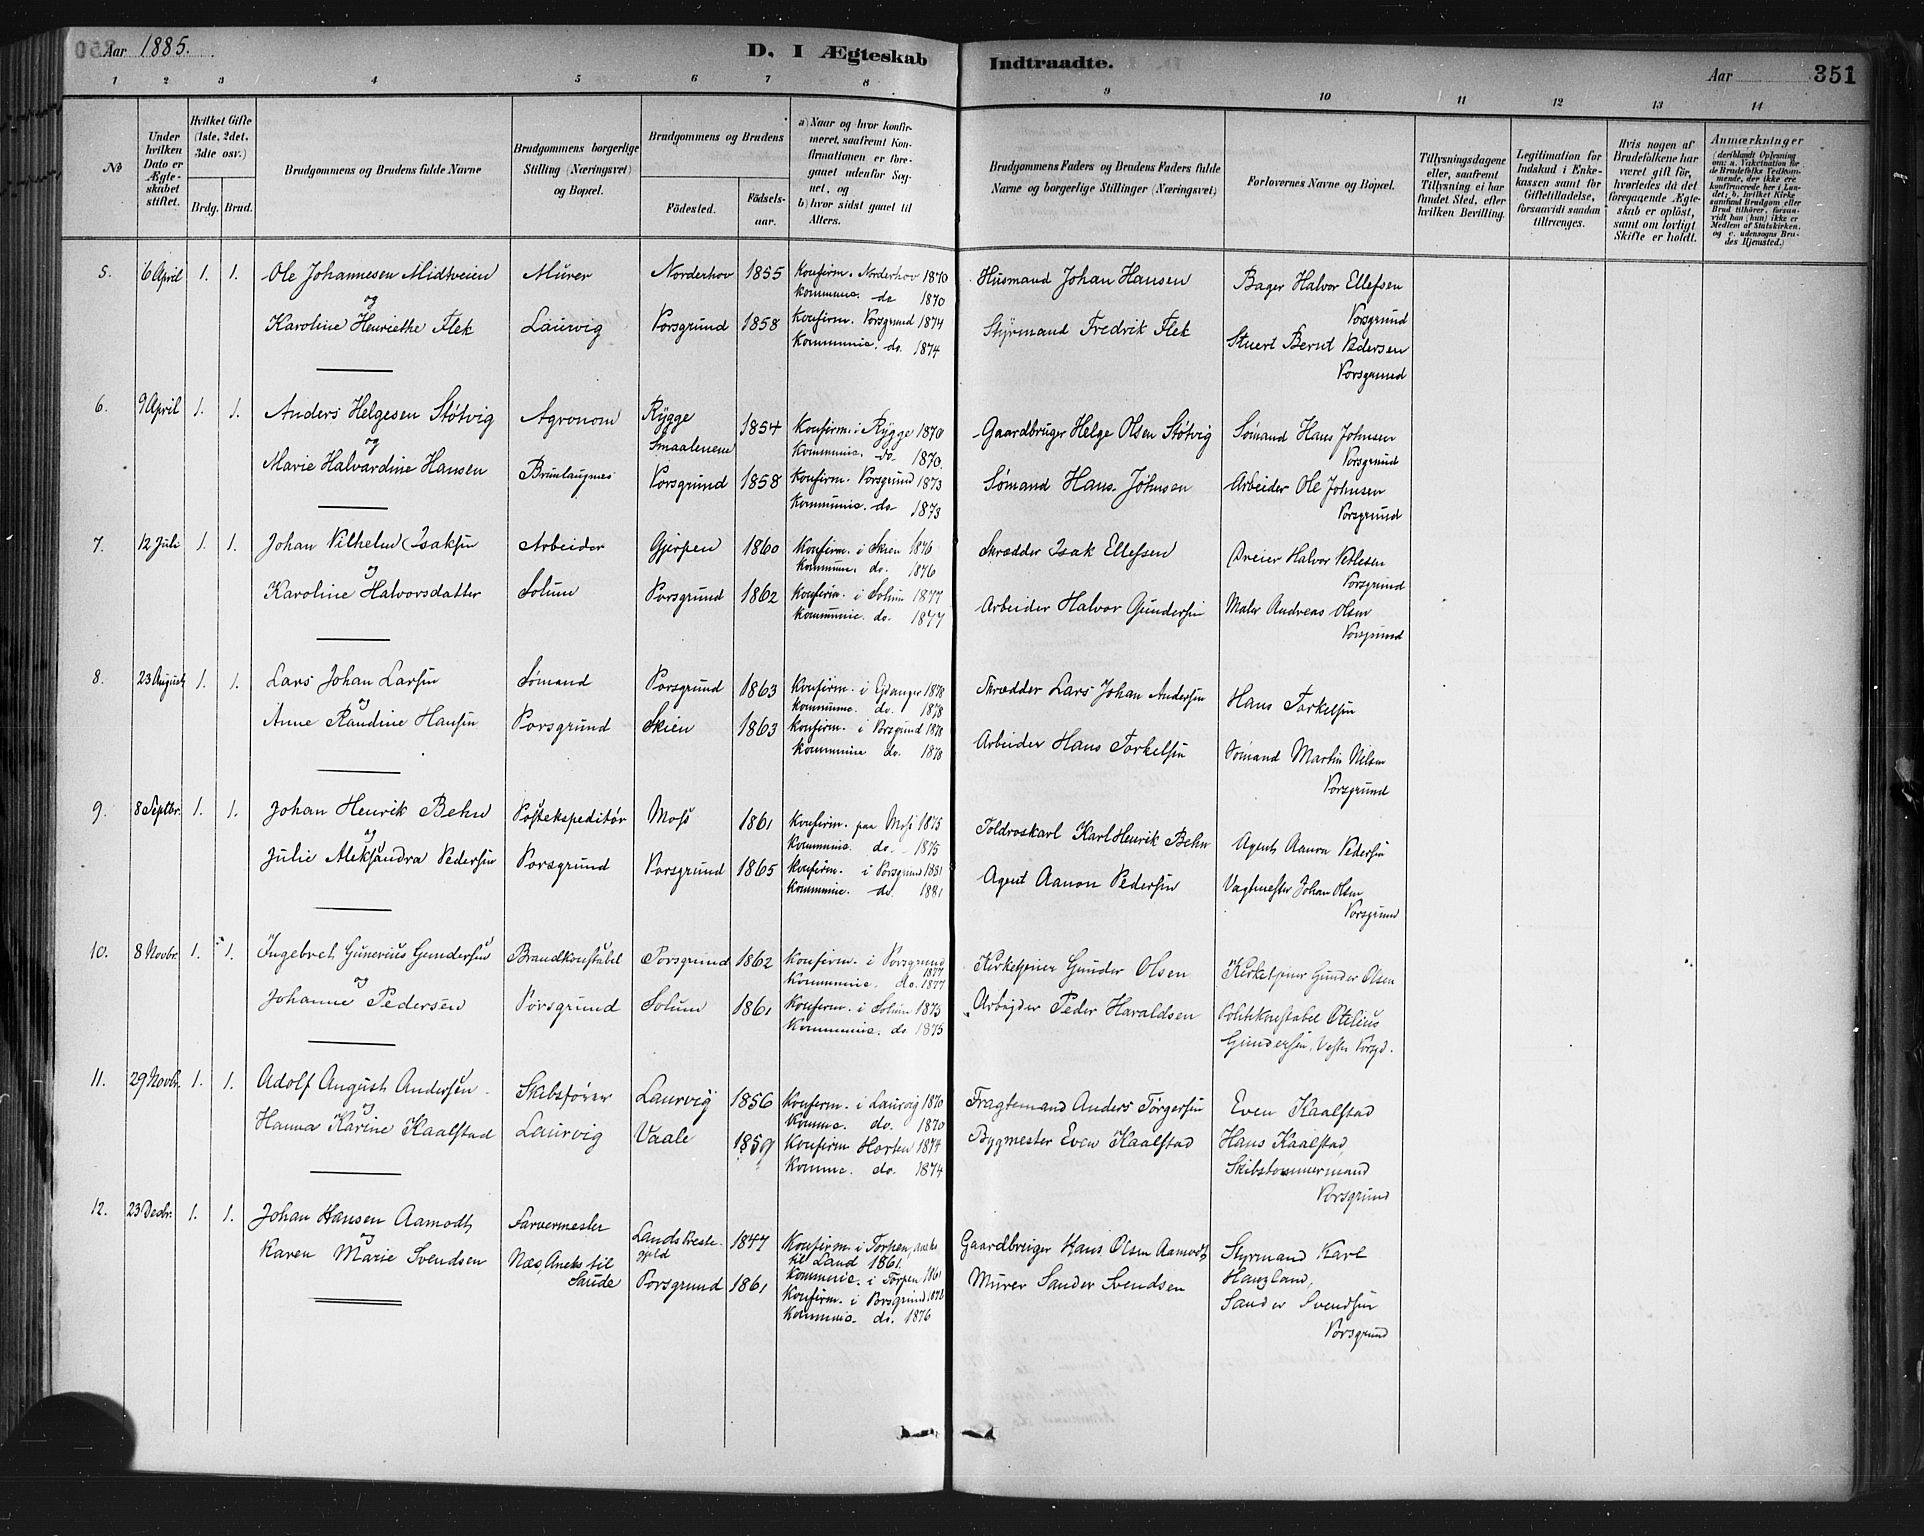 Aar 1885.
D. I Ægteskab Indtraadte.
Aar 351
1 2 3 4 5 6 7 8 9 10 11 12 13 14
No
Under hvilken Dato er Ægteskabet stiftet.
Hvilket Gifte (1ste, 2det, 3die osv.)
Brdg. Brud.
Brudgommens og Brudens fulde Navne
Brudgommens borgerlige Stilling (Næringsvei) og Bopæl.
Brudgommens og Brudens
Fødested.
Fødselsaar.
a) Naar og hvor konfirmeret, saafremt Konfirmationen er foregaaet udenfor Sognet, og
b) hvor sidst gaaet til Alters.
Brudgommens Faders og Brudens Faders fulde Navne og borgerlige Stillinger (Næringsvei).
Forlovernes Navne og Bopæl.
Tillysningsdagene eller, saafremt Tillysning ei har fundet Sted, efter hvilken Bevilling.
Legitimation for Indskud i Enkekassen samt for Giftetilladelse, forsaavidt saadan tiltrænges.
Hvis nogen af Brudefolkene har været gift før, hvorledes da det foregaaende Ægteskab er opløst, samt om lovligt Skifte er holdt.
Anmærkninger
(deriblandt Oplysning om: a. Vakcination for de Brudefolks Vedkommende, der ikke ere konfirmerede her i Landet; b. hvilket Kirkesamfund Brudgom eller Brud tilhører, forsaavidt han (hun) ikke er Medlem af Statskirken, og c. udensogns Brudes Hjemsted.)
5. 6 April 1. 1. Ole Johannesen Midtveien Murer Norderhov 1855 Konfirm. Norderhov 1870 Husmand Johan Hansen Bager Halvor Ellefsen
og Kommunic. do 1870 Porsgrund
Karoline Henriethe Flek Laurvig Porsgrund 1858 Konfirm. Porsgrund 1874 Styrmand Fredrik Flek Stuert Bernt Pedersen
Kommunic. do. 1874 Porsgrund
6. 9 April 1. 1. Anders Helgesen Støtvig Agronom Rygge Smaalenene 1854 Konfirm. i Rygge 1870 Gaardbruger Helge Olsen Støtvig Sømand Hans Johnsen
og Kommunic. do 1870. Porsgrund
Marie Halvardine Hansen Brunlaugnes Porsgrund 1858 Konfirm. Porsgrund 1873 Sømand Hans Johnsen Arbeider Ole Johnsen
Kommunic. do 1873 Porsgrund
7. 12 Juli 1. 1. Johan Vilhelm Isaksen Arbeider Gjerpen 1860 Konfirm. i Skien 1876 Skrædder Isak Ellefsen Dreier Halvor Vetlesen
og Kommun. do. 1876 Porsgrund
Karoline Halvorsdatter Solum Porsgrund 1862 Konfirm. i Solum 1877 Arbeider Halvor Gundersen Maler Andreas Olsen
Kommunic. do. 1877 Porsgrund
8. 23 August 1. 1. Lars Johan Larsen Sømand Porsgrund 1863 Konfirm. i Eidanger 1878 Skrædder Lars Johan Andersen Hans Torkelsen
og Kommunic. do. 1878
Anne Randine Hansen Porsgrund Skien 1863 Konfirm. i Porsgrund 1878 Arbeider Hans Torkelsen Sømand Martin Nilsen
Kommunic do. 1878 Porsgrund
9. 8 Septbr. 1. 1. Johan Henrik Behn Postekspeditør Moss 1861 Konfirm. paa Moss 1875 Toldroskarl Karl Henrik Behn Agent Aanon Pedersen
og Kommunic. do. 1875
Julie Aleksandra Pedersen Porsgrund Porsgrund 1865 Konfirm. i Porsgrund 1881 Agent Aanon Pedersen Vagtmester Johan Olsen
Kommunic. do. 1881 Porsgrund
10. 8 Novbr. 1. 1. Ingebret Gunerius Gundersen Brandkonstabel Porsgrund 1862 Konfirm. i Porsgrund 1877 Kirketjener Gunder Olsen Kirketjener Gunder Olsen
og Kommunic. do. 1877
Johanne Pedersen Porsgrund Solum 1861 Konfirm. i Solum 1875 Arbejder Peder Haraldsen Politikonstabel Otelius
Kommunic. do 1875 Gundersen, Vestre Porsgd.
11. 29 Novbr. 1. 1. Adolf August Andersen Skibsfører Laurvig 1856 Konfirm. i Laurvig 1870 Fragtemand Anders Torgersen Even Kaalstad
og Kommc. do. 1870
Hanna Karine Kaalstad Laurvig Vaale 1859 Konfirm Horten 1874 Bygmester Even Kaalstad Hans Kaalstad,
Kommc. do. 1874 Skibstømmermand
Porsgrund
12. 23 Decbr. 1. 1. Johan Hansen Aamodt Farvermester Lands Prestegjeld 1847 Konfirm. i Torpen, Aneks til Land 1861. Gaardbruger Hans Olsen Aamodt Styrmand Karl
og Kommunic. i Torpen 1861 Haugland,
Karen Marie Svendsen Næs, Aneks til Saude Porsgrund 1861 Konfirm. i Porsgrund 1876 Murer Sander Svendsen Sander Svendsen
Kommunic. do. 1876 Porsgrund